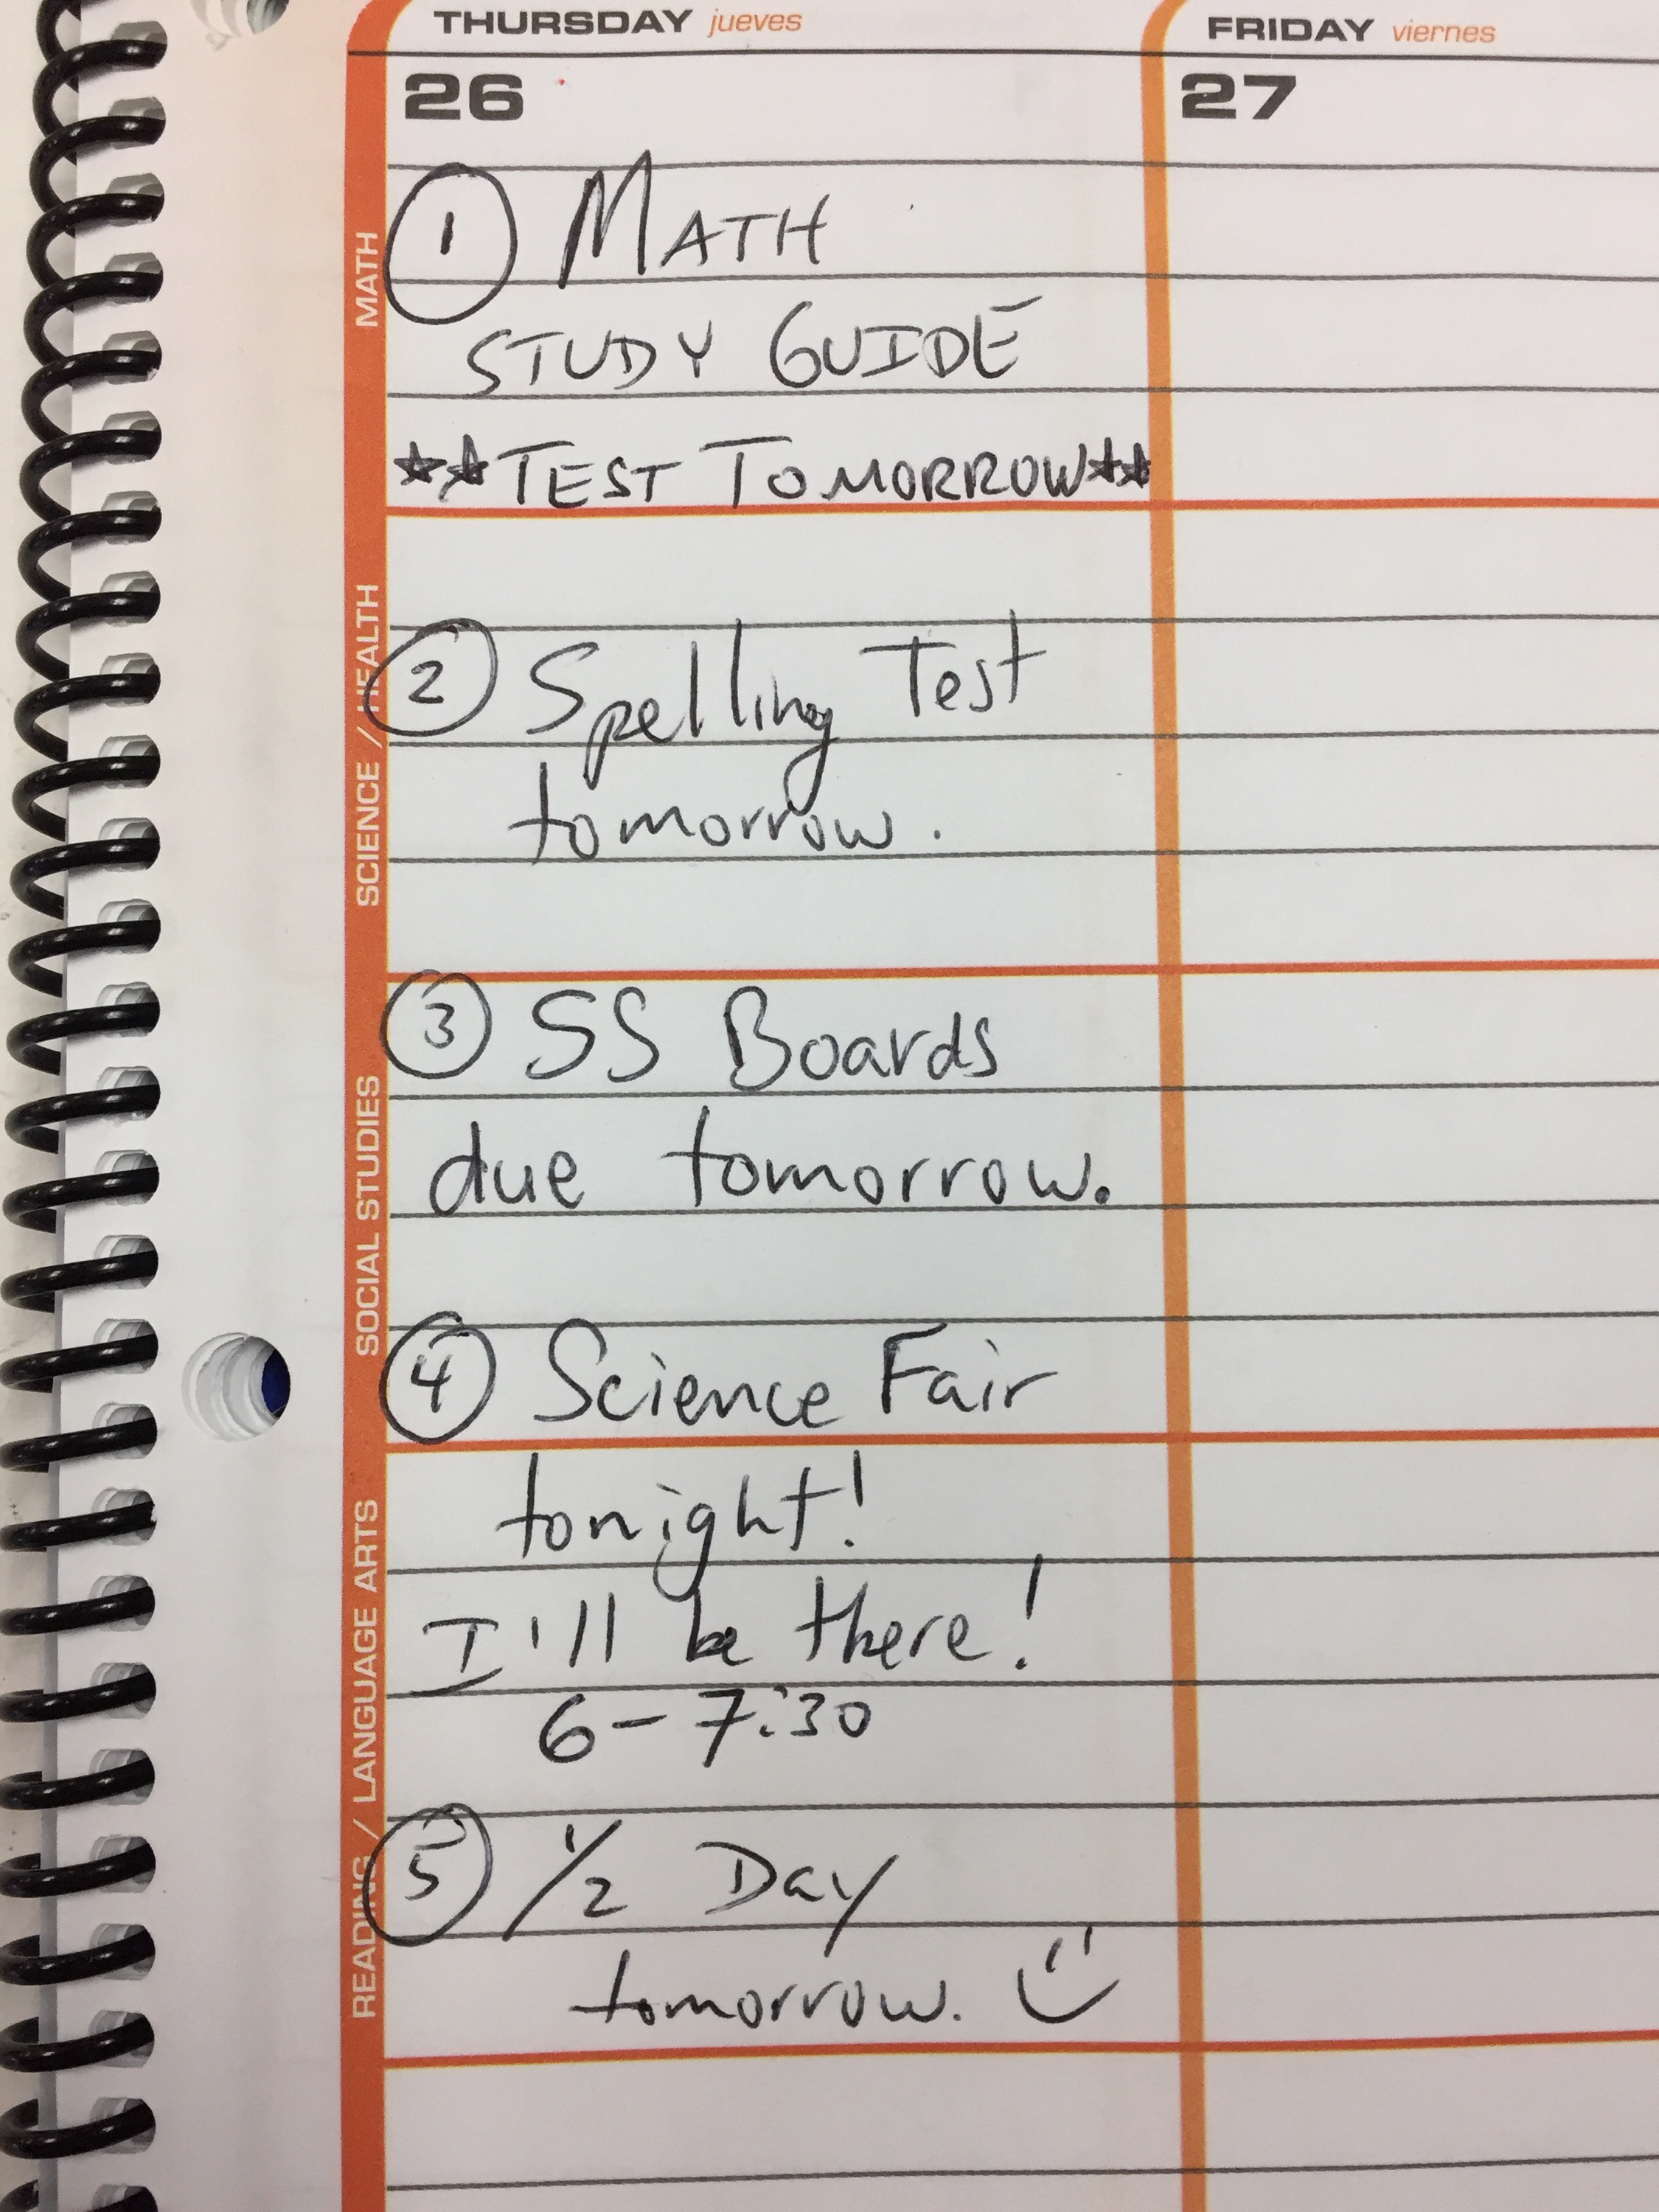 THURSDAY jueves
FRIDAY viernes
26
27
MATH
① MATH
STUDY GUIDE
★★TEST TOMORROW★★
SCIENCE / HEALTH
② Spelling Test
tomorrow.
SOCIAL STUDIES
③ SS Boards
due tomorrow.
④ Science Fair
tonight!
READING / LANGUAGE ARTS
I'll be there!
6-7:30
⑤ 1/2 Day
tomorrow.